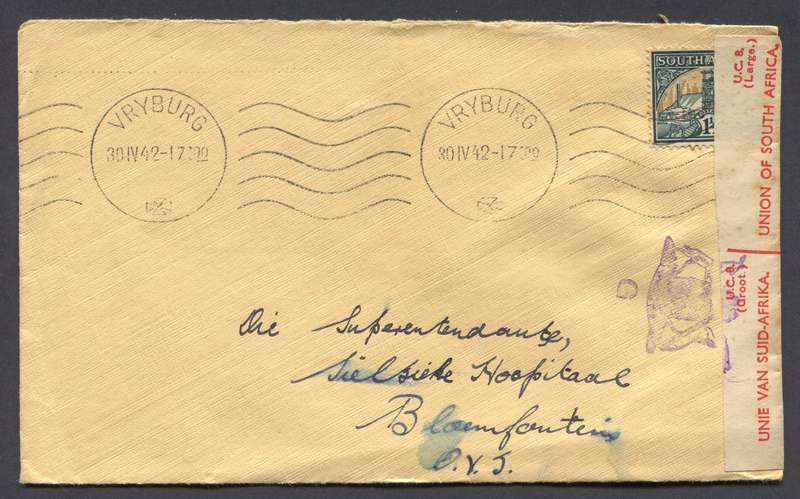 VRYBURG
30 IV 42-1730
VRYBURG
30 IV 42-1730
SOUTH A
1½
U.C. 8.
(Large.)
UNION OF SOUTH AFRICA.
U.C. 8.
(Groot.)
UNIE VAN SUID-AFRIKA.
Die Superentendante,
Sielsieke Hospitaal
Bloemfontein
O.V.S.